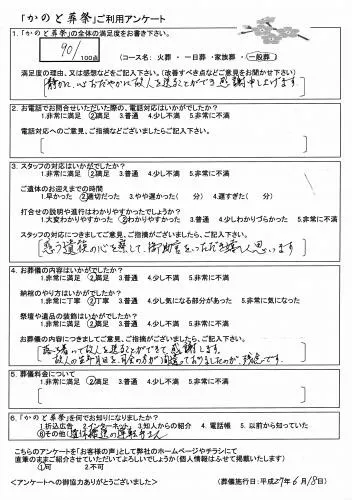 「かのと葬祭」ご利用アンケート
1.「かのと葬祭」の全体の満足度をお書き下さい。
90/100点 (コース名: 火葬 ・ 一日葬 ・家族葬 ・一般葬)
満足度の理由、又は感想などをご記入下さい。(改善すべき点などご意見をお聞かせ下さい)
静かに、心おだやかに故人を送ることができ感謝申し上げます
2. お電話でお問合せいただいた際の、電話対応はいかがでしたか?
1.非常に満足 ②満足 3.普通 4.少し不満 5.非常に不満
電話対応へのご意見、ご指摘などございましたらご記入下さい。
3. スタッフの対応はいかがでしたか?
1.非常に満足 ②満足 3.普通 4.少し不満 5.非常に不満
ご遺体のお迎えまでの時間
1.早かった ②適切だった 3.やや遅かった( 分) 4.遅すぎた( 分)
打合せの説明や進行はわかりやすかったでしょうか?
1.大変わかりやすかった ②わかりやすかった 3.普通 4.少しわかりづらかった 5.非常に不満
スタッフの対応につきましてご意見、ご指摘などございましたらご記入下さい。
思う遺族の心を察して、御助言をいただき嬉しく思います
4. お葬儀の内容はいかがでしたか?
1.非常に満足 ②満足 3.普通 4.少し不満 5.非常に不満
納棺のやり方はいかがでしたか?
1.非常に丁寧 ②丁寧 3.普通 4.少し気になる部分があった 5.非常に気になった
祭壇や遺品の装飾はいかがでしたか?
1.非常に満足 ②満足 3.普通 4.少し不満 5.非常に不満
お葬儀の内容につきましてご意見、ご指摘がございましたら、ご記入下さい。
落ち着いて故人を送ることができて感謝します。
故人の生年月日を司会の方が間違っておりましたのが、残念です。
5. 葬儀料金について
1.非常に満足 ②満足 3.普通 4.少し不満 5.非常に不満
6.「かのと葬祭」を何でお知りになりましたか?
1.折込広告 2.インターネット 3.知人からの紹介 4.電話帳 5.以前から知っていた
⑥その他(遺体搬送の運転手さん
こちらのアンケートを「お客様の声」として弊社のホームページやチラシにて
直筆のままご紹介させていただいてよろしいでしょうか(個人情報はふせて掲載いたします)
①可 2.不可
<アンケートへの御協力ありがとうございました> (葬儀施行日:平成27年6月18日)